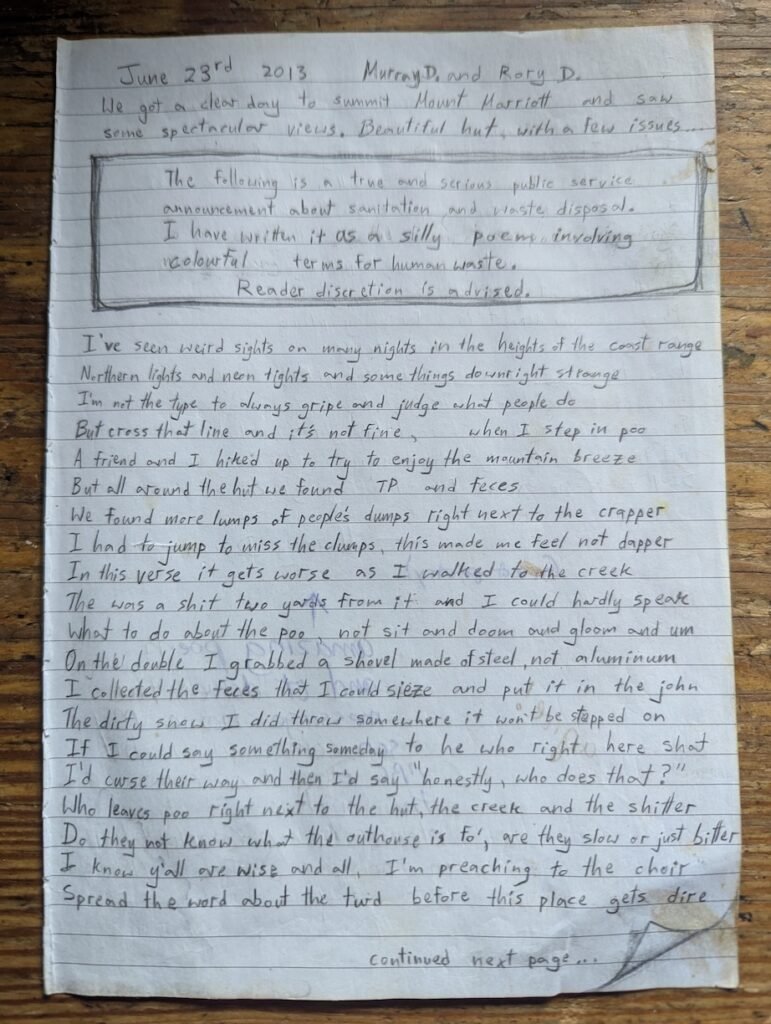 June 23rd 2013 Murray D. and Rory D.
We got a clear day to summit Mount Marriott and saw
some spectacular views. Beautiful hut, with a few issues...
The following is a true and serious public service
announcement about sanitation and waste disposal.
I have written it as a silly poem involving
colourful terms for human waste.
Reader discretion is advised.
I've seen weird sights on many nights in the heights of the coast range
Northern lights and neon tights and some things downright strange
I'm not the type to always gripe and judge what people do
But cross that line and it's not fine, when I step in poo
A friend and I hiked up to try to enjoy the mountain breeze
But all around the hut we found TP and feces
We found more lumps of people's dumps right next to the crapper
I had to jump to miss the clumps, this made me feel not dapper
In this verse it gets worse as I walked to the creek
The was a shit two yards from it and I could hardly speak
What to do about the poo, not sit and doom and gloom and um
On the double I grabbed a shovel made of steel, not aluminum
I collected the feces that I could sieze and put it in the john
The dirty snow I did throw somewhere it won't be stepped on
If I could say something someday to he who right here shat
I'd curse their way and then I'd say "honestly, who does that?"
Who leaves poo right next to the hut, the creek and the shitter
Do they not know what the outhouse is fo', are they slow or just bitter
I know y'all are wise and all, I'm preaching to the choir
Spread the word about the turd before this place gets dire
continued next page...